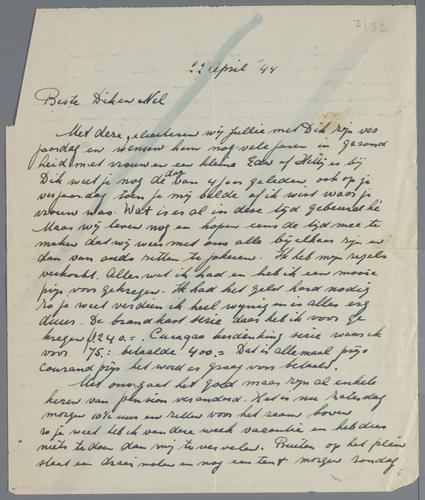 7132
22 April '44
Beste Dik en Nel
Met deze feliciteren wij jullie met Dik zijn ver
jaardag en wensen hem nog vele jaren in gezond
heid met vrouw en een kleine Eda of Hetty er bij
Dik weet je nog de dag van 4 jaar geleden, ook op je
verjaardag toen je mij belde of ik wist waar je
vrouw was. Wat is er al in deze tijd gebeurd hè
Maar wij leven nog en hopen eens de tijd mee te
maken dat wij weer met ons alle bij elkaar zijn en
dan van ouds zitten te jokeren. Ik heb mijn zegels
verkocht. Alles wat ik had en heb ik een mooie
prijs voor gekregen. Ik had het geld hard nodig
zo je weet verdien ik heel weinig en is alles erg
duur. De brandkast serie daar heb ik voor ge
kregen f 240.= . Curaçao herdenking serie waar ik
voor 75.= betaalde 400.= Dat is allemaal prijs
courand prijs het word er graag voor betaald.
Met ons gaat het goed maar zijn al enkele
keren van pension veranderd. Het is nu zaterdag
morgen 10½ uur en zitten voor het raam boven
zo je weet heb ik van deze week vacantie en heb dus
niets te doen dan mij te vervelen. Buiten op het plein
staat een draaimolen en nog een tent morgen zondag